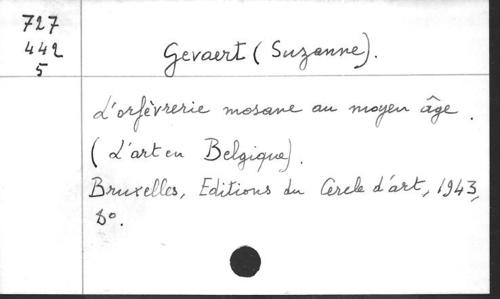 727
442
5
Gevaert (Suzanne).
L'orfèvrerie mosane au moyen âge.
(L'art en Belgique).
Bruxelles, Editions du Cercle d'art, 1943,
8°.